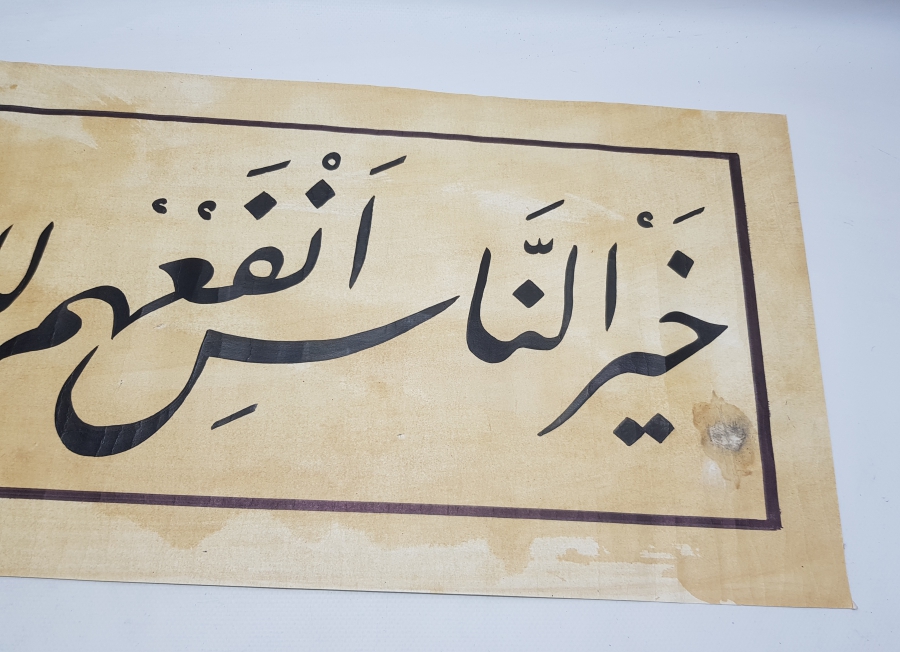 خَيْرُ النَّاسِ اَنْفَعُهُم